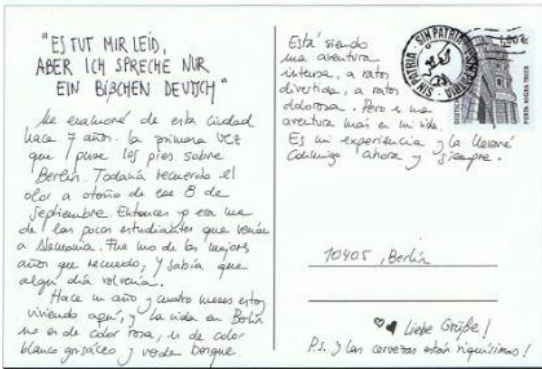 "ES TUT MIR LEID,
ABER ICH SPRECHE NUR
EIN BISCHEN DEUTCH"
Me enamoré de esta ciudad
hace 7 años. La primera vez
que puse los pies sobre
Berlín. Todavía recuerdo el
olor a otoño de ese 8 de
Septiembre. Entonces yo era una
de las pocas estudiantes que venían
a Alemania. Fue uno de los mejores
años que recuerdo, y sabía que
algún día volvería.
Hace un año y cuatro meses estoy
viviendo aquí, y la vida en Berlín
no es de color rosa, es de color
blanco grisáceo y verde bosque
Está siendo
una aventura
intensa, a ratos
divertida, a ratos
dolorosa. Pero es una
aventura más en mi vida.
Es mi experiencia y la llevaré
conmigo ahora y siempre.
SIN PATRIA SIN PATRIA
1,00€
DEUTSCHLAND
PORTA NIGRA TRIER
10405, Berlín
Liebe Grüße!
P.S. y las cervezas están riquísimas!